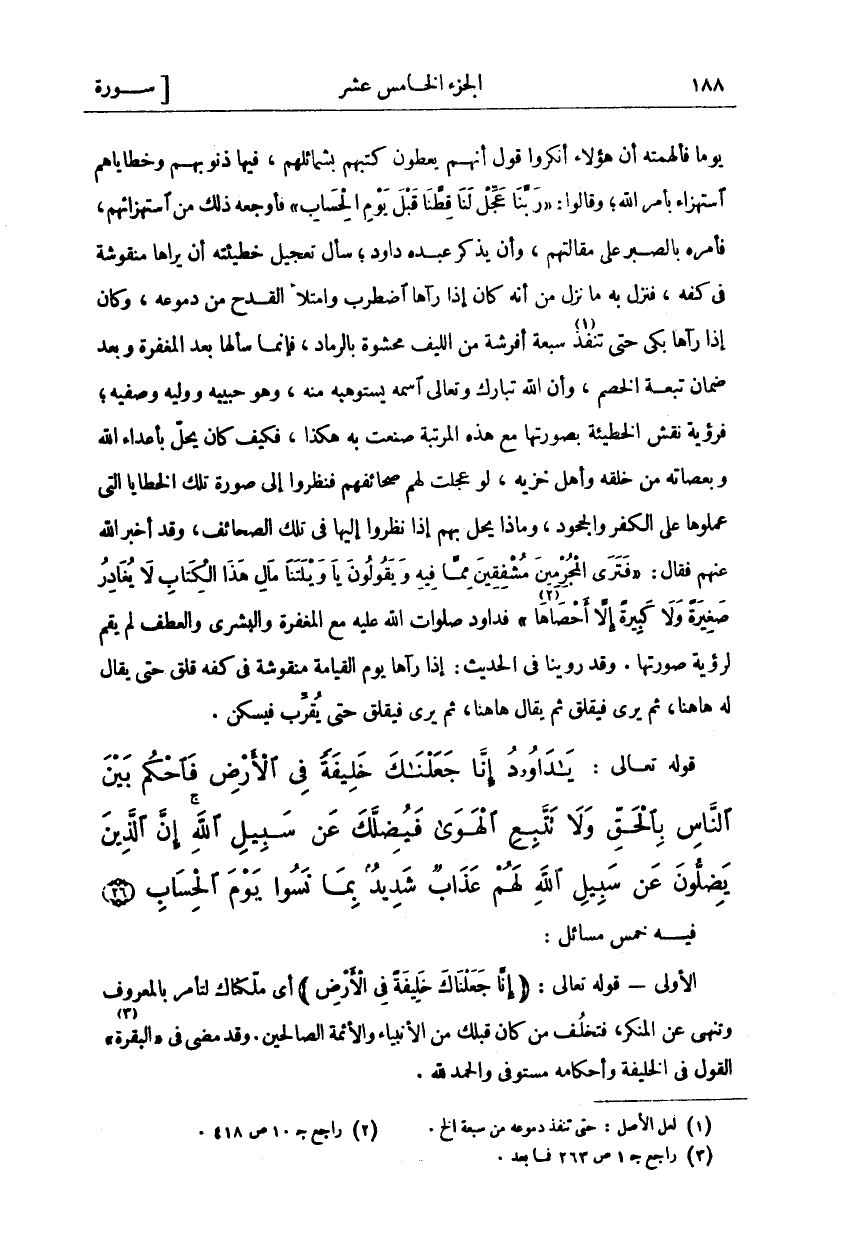 ١٨٨ الجزء الخامس عشر [ ســورة
يوما فألهمته أن هؤلاء أنكروا قول أنهم يعطون كتبهم بشمائلهم ، فيها ذنوبهم وخطاياهم
ٱستهزاء بأمر الله؛ وقالوا: «رَبَّنَا عَجِّلْ لَنَا قِطَّنَا قَبْلَ يَوْمِ الْحِسَابِ» فأوجعه ذلك من ٱستهزائهم،
فأمره بالصبر على مقالتهم ، وأن يذكر عبده داود ؛ سأل تعجيل خطيئته أن يراها منقوشة
فى كفه ، فنزل به ما نزل من أنه كان إذا رآها ٱضطرب وامتلأ القدح من دموعه ، وكان
إذا رآها بكى حتى تنفذ (١) سبعة أفرشة من الليف محشوة بالرماد ، فإنما سألها بعد المغفرة وبعد
ضمان تبعة الخصم ، وأن الله تبارك وتعالى ٱسمه يستوهبه منه ، وهو حبيبه ووليه وصفيه ؛
فرؤية نقش الخطيئة بصورتها مع هذه المرتبة صنعت به هكذا ، فكيف كان يحلّ بأعداء الله
وبعصاته من خلقه وأهل خزيه ، لو عجلت لهم صحائفهم فنظروا إلى صورة تلك الخطايا التى
عملوها على الكفر والجحود ، وماذا يحل بهم إذا نظروا إليها فى تلك الصحائف، وقد أخبر الله
عنهم فقال : «فَتَرَى الْمُجْرِمِينَ مُشْفِقِينَ مِمَّا فِيهِ وَيَقُولُونَ يَا وَيْلَتَنَا مَالِ هَذَا الْكِتَابِ لَا يُغَادِرُ
صَغِيرَةً وَلَا كَبِيرَةً إِلَّا أَحْصَاهَا (٢)» فداود صلوات الله عليه مع المغفرة والبشرى والعطف لم يقم
لرؤية صورتها . وقد روينا فى الحديث : إذا رآها يوم القيامة منقوشة فى كفه قلق حتى يقال
له هاهنا، ثم يرى فيقلق ثم يقال هاهنا، ثم يرى فيقلق حتى يُقرَّب فيسكن .
قوله تعالى : يَـٰدَاوُۥدُ إِنَّا جَعَلْنَـٰكَ خَلِيفَةً فِى ٱلْأَرْضِ فَٱحْكُم بَيْنَ
ٱلنَّاسِ بِٱلْحَقِّ وَلَا تَتَّبِعِ ٱلْهَوَىٰ فَيُضِلَّكَ عَن سَبِيلِ ٱللَّهِ ۚ إِنَّ ٱلَّذِينَ
يَضِلُّونَ عَن سَبِيلِ ٱللَّهِ لَهُمْ عَذَابٌ شَدِيدُۢ بِمَا نَسُوا يَوْمَ ٱلْحِسَابِ (٢٦)
فيــه خمس مسائل :
الأولى – قوله تعالى : ﴿ إِنَّا جَعَلْنَاكَ خَلِيفَةً فِى الْأَرْضِ ﴾ أى ملّكناك لتأمر بالمعروف
وتنهى عن المنكر، فتخلُف من كان قبلك من الأنبياء والأئمة الصالحين. وقد مضى فى «البقرة» (٣)
القول فى الخليفة وأحكامه مستوفى والحمد لله .
(١) لعل الأصل : حتى تنفذ دموعه من سبعة الخ . (٢) راجع جـ ١٠ ص ٤١٨ .
(٣) راجع جـ ١ ص ٢٦٣ فما بعد .